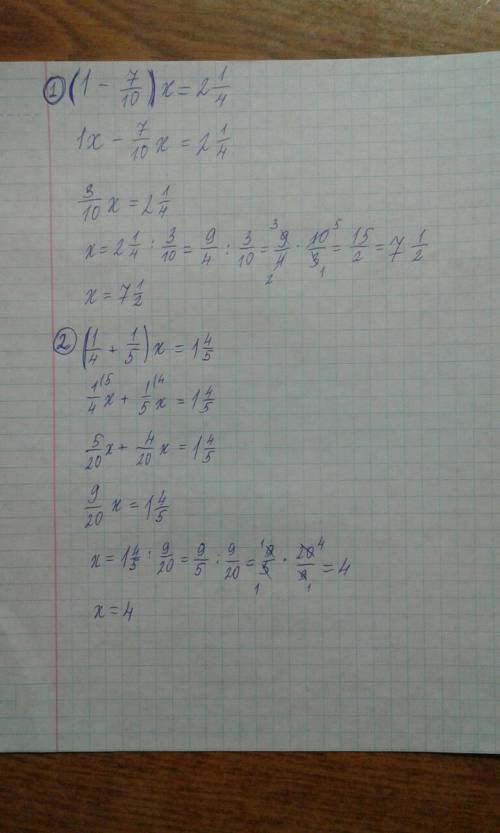 ① (1 - 7/10) x = 2 1/4
1x - 7/10 x = 2 1/4
3/10 x = 2 1/4
x = 2 1/4 : 3/10 = 9/4 : 3/10 = ³9/4₂ · 10⁵/3₁ = 15/2 = 7 1/2
x = 7 1/2
② (1/4 + 1/5) x = 1 4/5
1/4⁽⁵ x + 1/5⁽⁴ x = 1 4/5
5/20 x + 4/20 x = 1 4/5
9/20 x = 1 4/5
x = 1 4/5 : 9/20 = 9/5 : 9/20 = ¹9/5₁ · 20⁴/9₁ = 4
x = 4